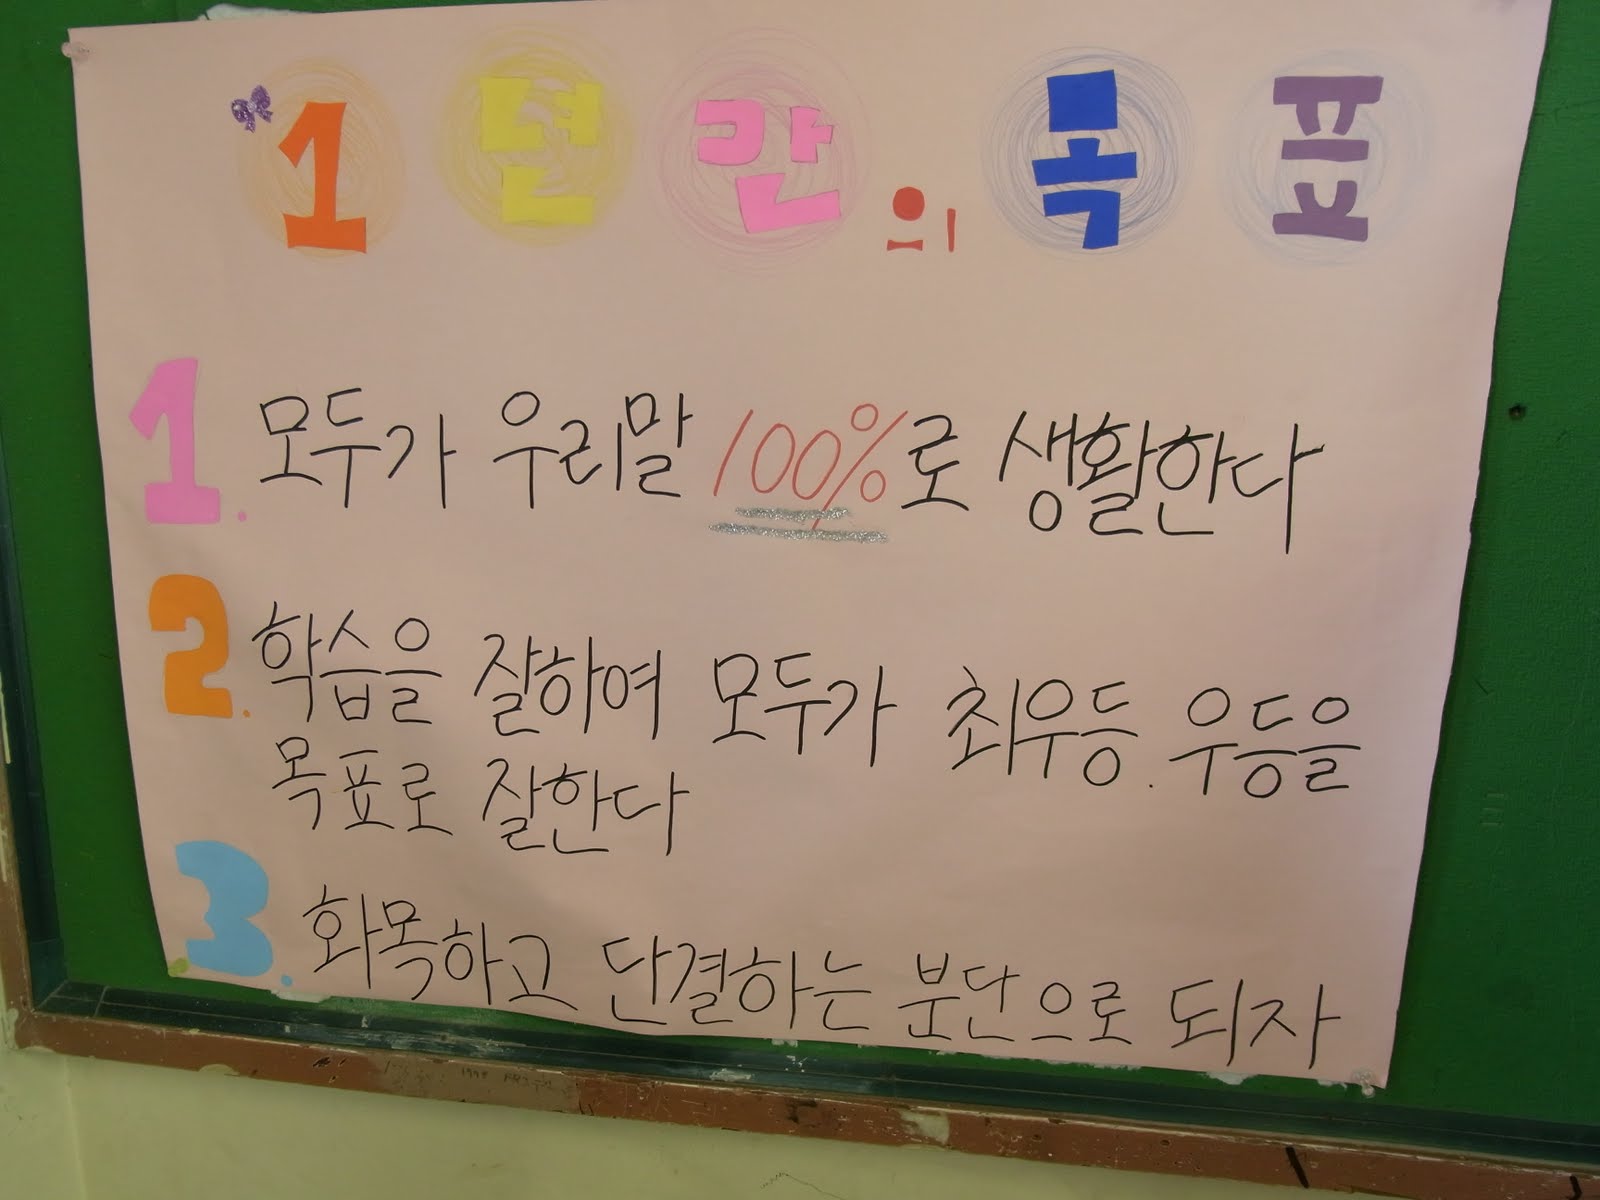 1년간의 목표
1. 모두가 우리말 100%로 생활한다
2. 학습을 잘하여 모두가 최우등. 우등을
목표로 잘한다
3. 화목하고 단결하는 분단으로 되자